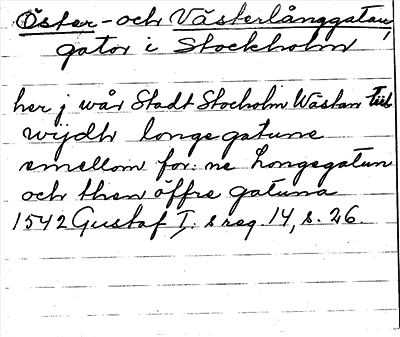 Öster- och Västerlånggatan,
gator i Stockholm
her j wår Stadt Stocholm Wästan till
wijdh longegatune
emellom for:ne Longegatun
och then öffre gatuna
1542 Gustaf I:s reg. 14, s. 26.